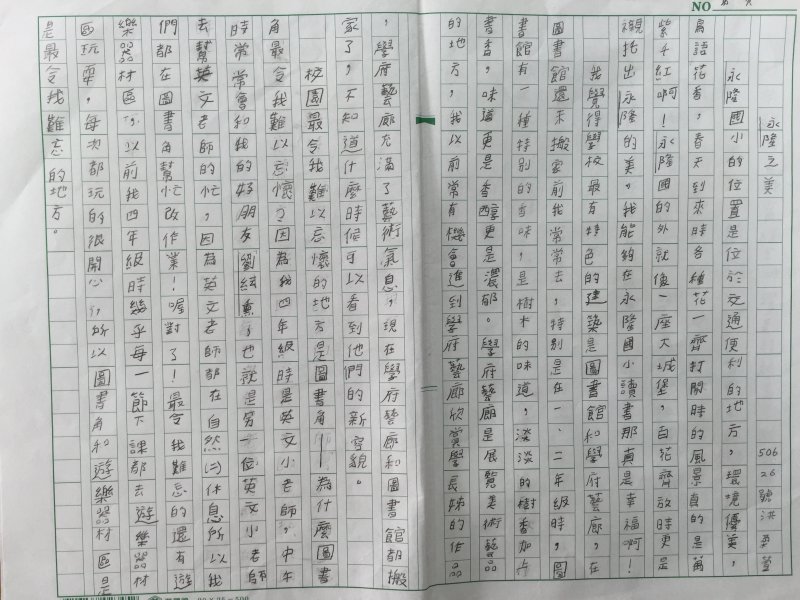 NO
永隆之美
506
26號洪萱
永隆國小的位置是位於交通便利的地方,環境優美,
鳥語花香,春天到來時各種花一齊打開時的風景真的是萬
紫千紅啊!永隆國的外就像一座大城堡,百花齊放時更是
襯托出永隆的美,我能夠在永隆國小讀書,那真是幸福啊!
我覺得學校最有特色的建築是圖書館和學府藝廊,在
圖書館還未搬家前我常常去,特別是在一、二年級時,圖
書館有一種特別的香味,是樹木的味道,淡淡的樹香加上
書香,味道更是香醇更是濃郁。學府藝廊是展覽美術藝品
的地方,我以前常有機會進到學府藝廊欣賞學長姊的作品
,學府藝廊充滿了藝術氣息,現在學府藝廊和圖書館都搬
家了,不知道什麼時候可以看到他們的新容貌。
校園最令我難以忘懷的地方是圖書角—為什麼圖書
角最令我難以忘懷?因為我四年級時是英文小老師,中午
時常常會和我的好朋友劉,也就是另一位英文小老師
去幫英文老師的忙,因為英文老師都在自然(二)休息所以我
們都在圖書角幫忙改作業!喔對了!最令我難忘的還有遊
樂器材區,以前我四年級時幾乎每一節下課都去遊樂器材
區玩耍,每次都玩的很開心,所以圖書角和遊樂器材區是
是最令我難忘的地方。